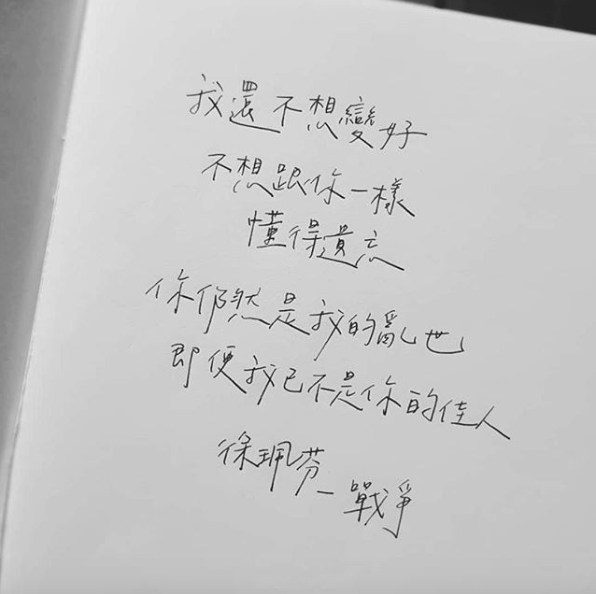 我還不想變好
不想跟你一樣
懂得遺忘
你仍然是我的亂世
即便我已不是你的佳人
徐珮芬_戰爭